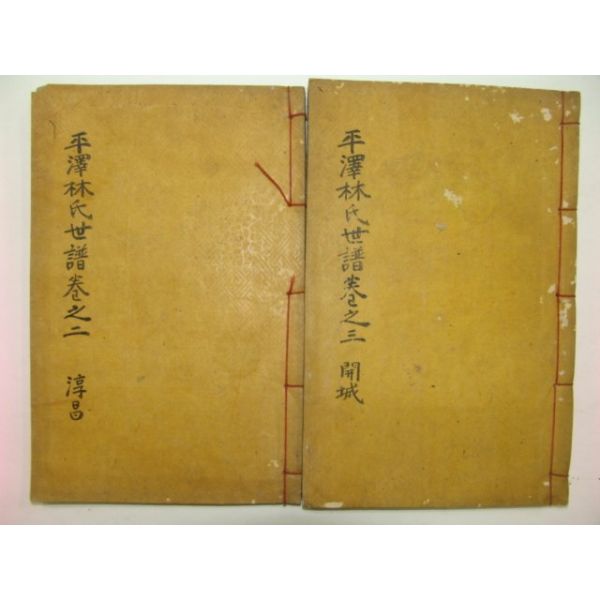 平澤林氏世譜卷之二 淳昌
平澤林氏世譜卷之三 開城